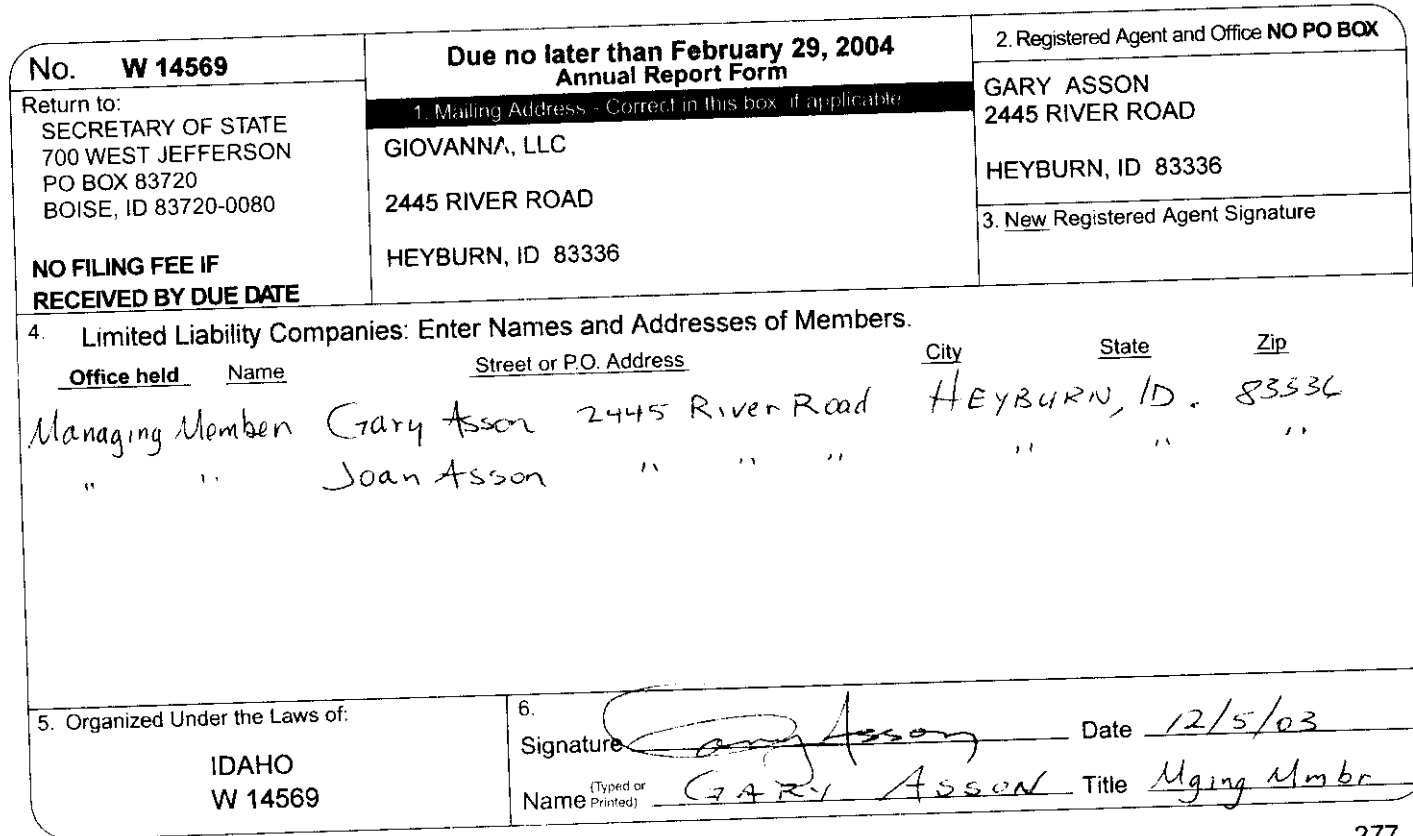 No. W 14569
Return to:
SECRETARY OF STATE
700 WEST JEFFERSON
PO BOX 83720
BOISE, ID 83720-0080
NO FILING FEE IF
RECEIVED BY DUE DATE
Due no later than February 29, 2004
Annual Report Form
1. Mailing Address - Correct in this box if applicable
GIOVANNA, LLC
2445 RIVER ROAD
HEYBURN, ID 83336
2. Registered Agent and Office NO PO BOX
GARY ASSON
2445 RIVER ROAD
HEYBURN, ID 83336
3. New Registered Agent Signature
4. Limited Liability Companies: Enter Names and Addresses of Members.
Office held Name Street or P.O. Address City State Zip
Managing Member Gary Asson 2445 River Road HEYBURN, ID. 83336
" " Joan Asson " " " " " "
5. Organized Under the Laws of:
IDAHO
W 14569
6.
Signature Gary Asson Date 12/5/03
Name (Typed or Printed) GARY ASSON Title Mging Mmbr
277